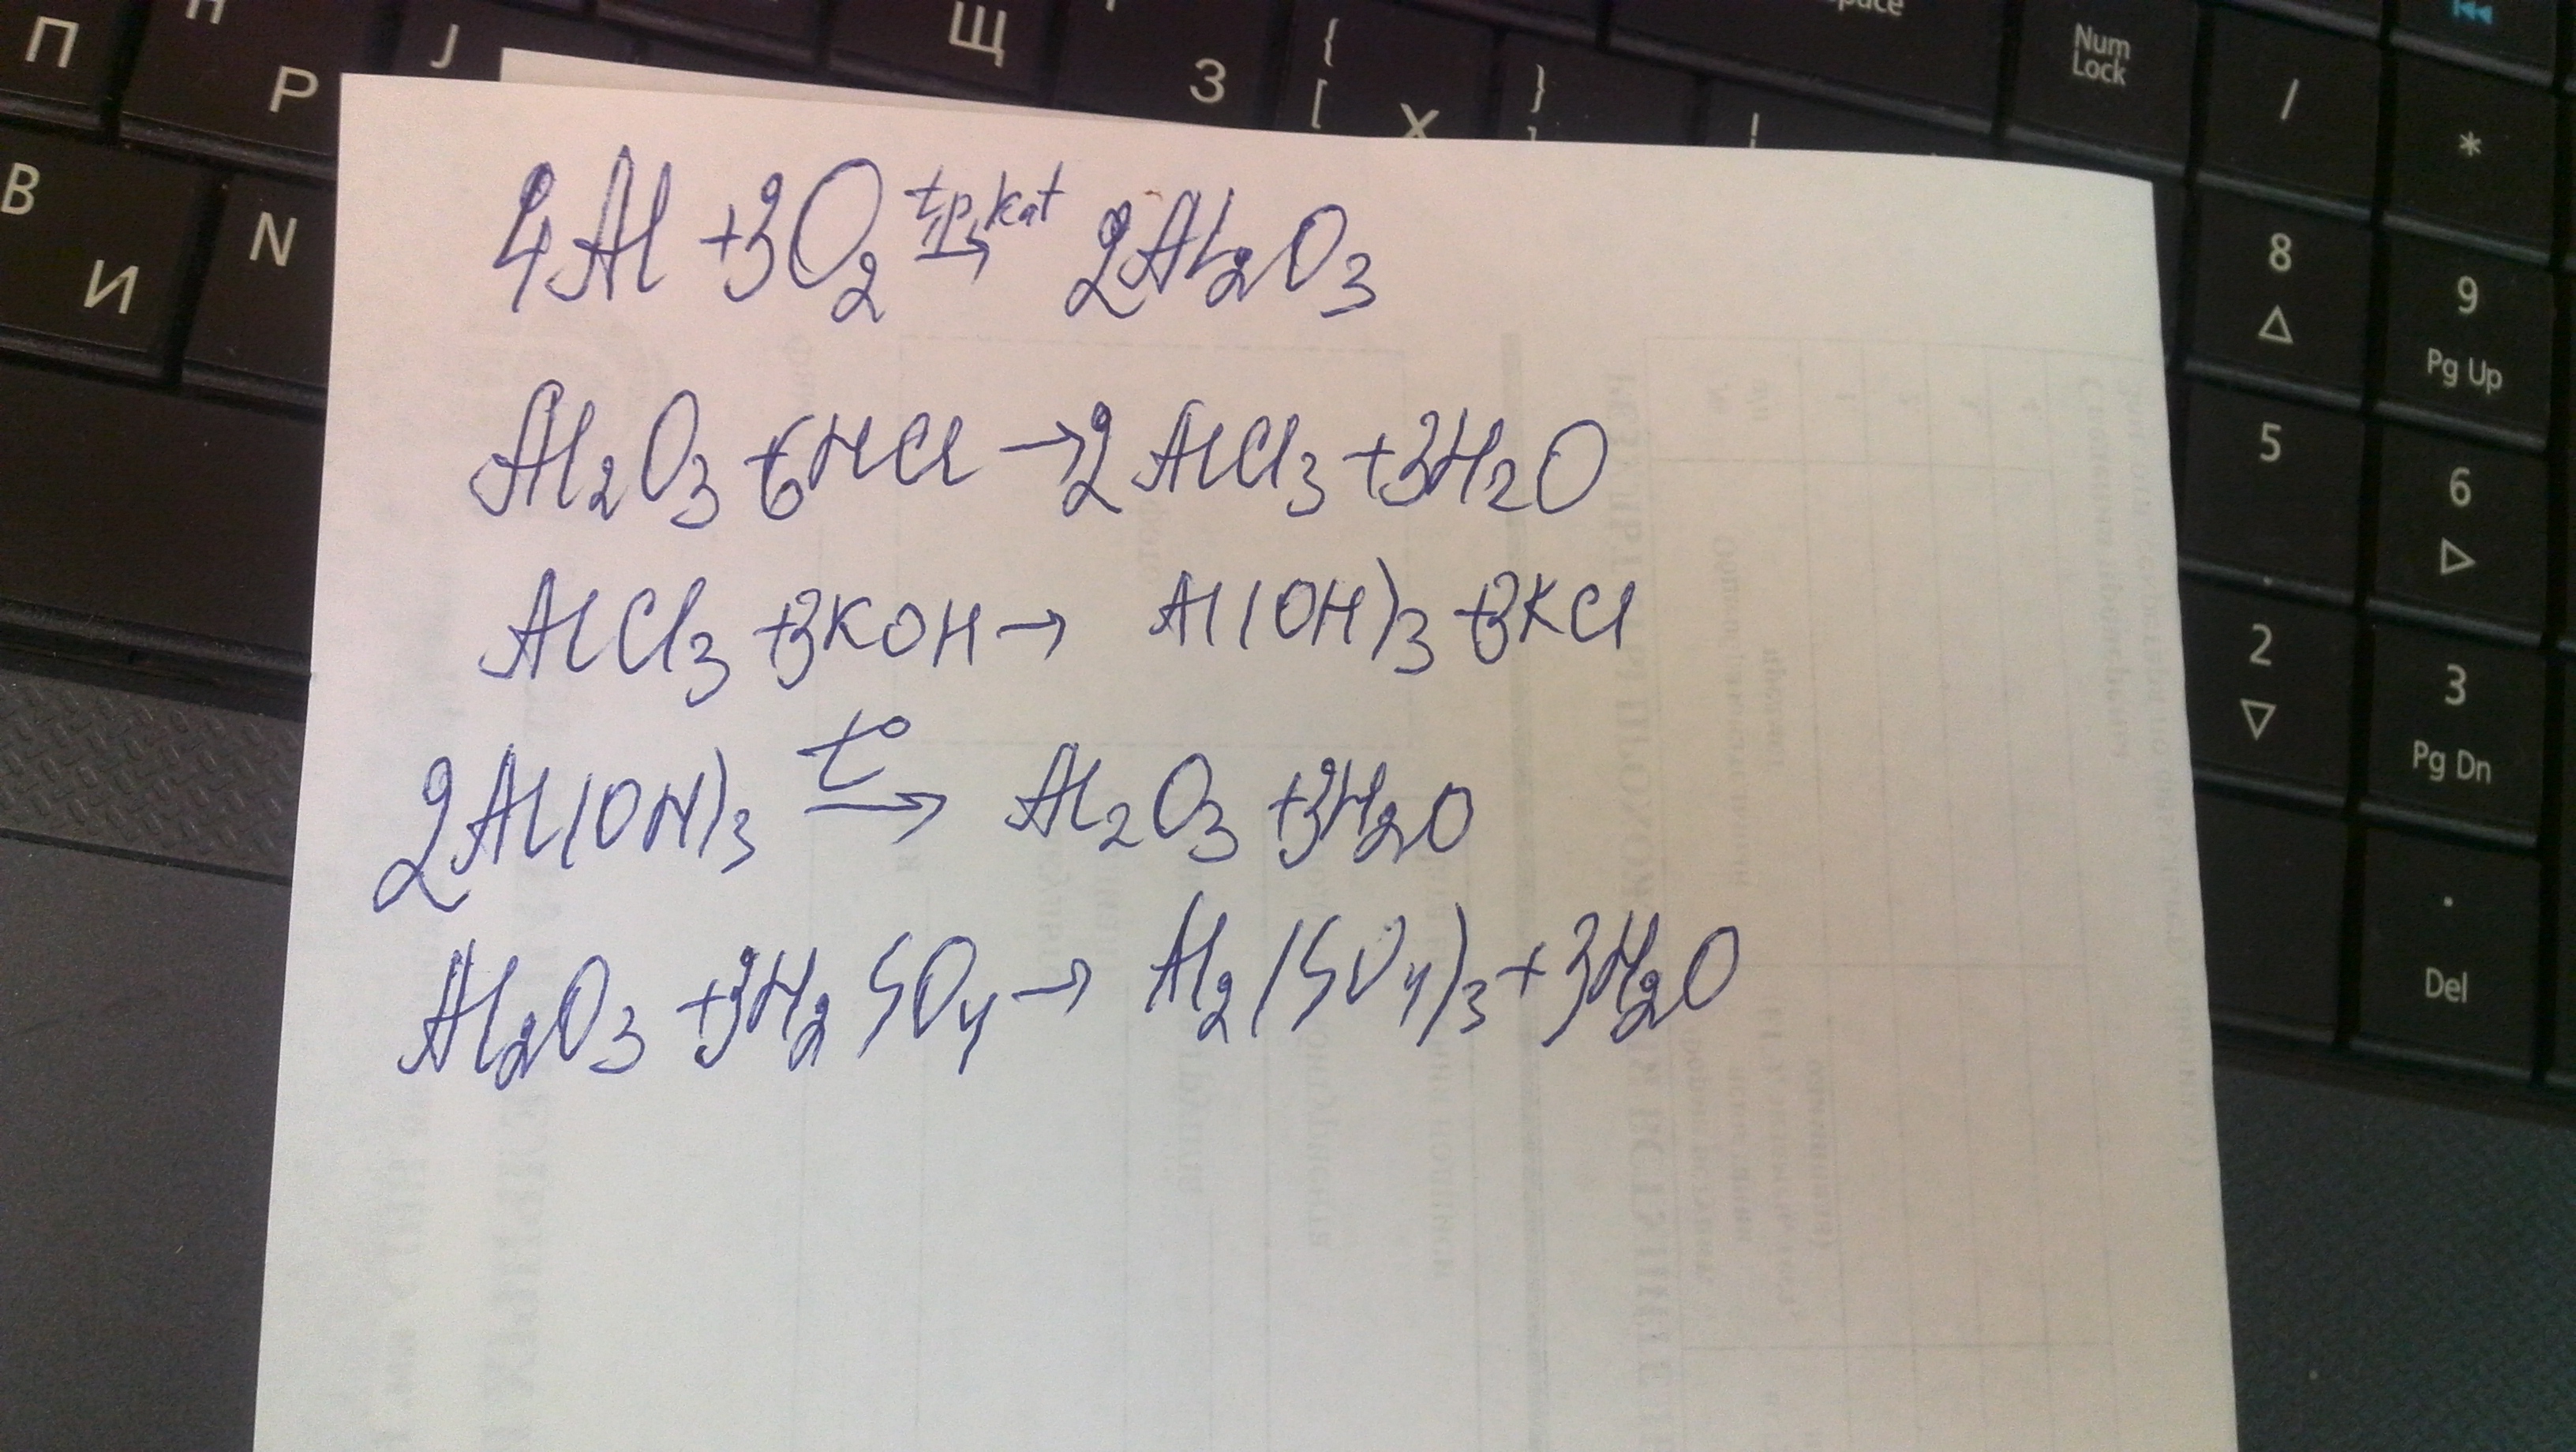 П
Н
Р
J
Щ
З
{
[
Х
}
Num
Lock
/
*
В
И
N
8
9
Pg Up
5
6
2
3
Pg Dn
.
Del
4Al + 3O₂ t,p,kat → 2Al₂O₃
Al₂O₃ + 6HCl → 2AlCl₃ + 3H₂O
AlCl₃ + 3KOH → Al(OH)₃ + 3KCl
2Al(OH)₃ t° → Al₂O₃ + 3H₂O
Al₂O₃ + 3H₂SO₄ → Al₂(SO₄)₃ + 3H₂O